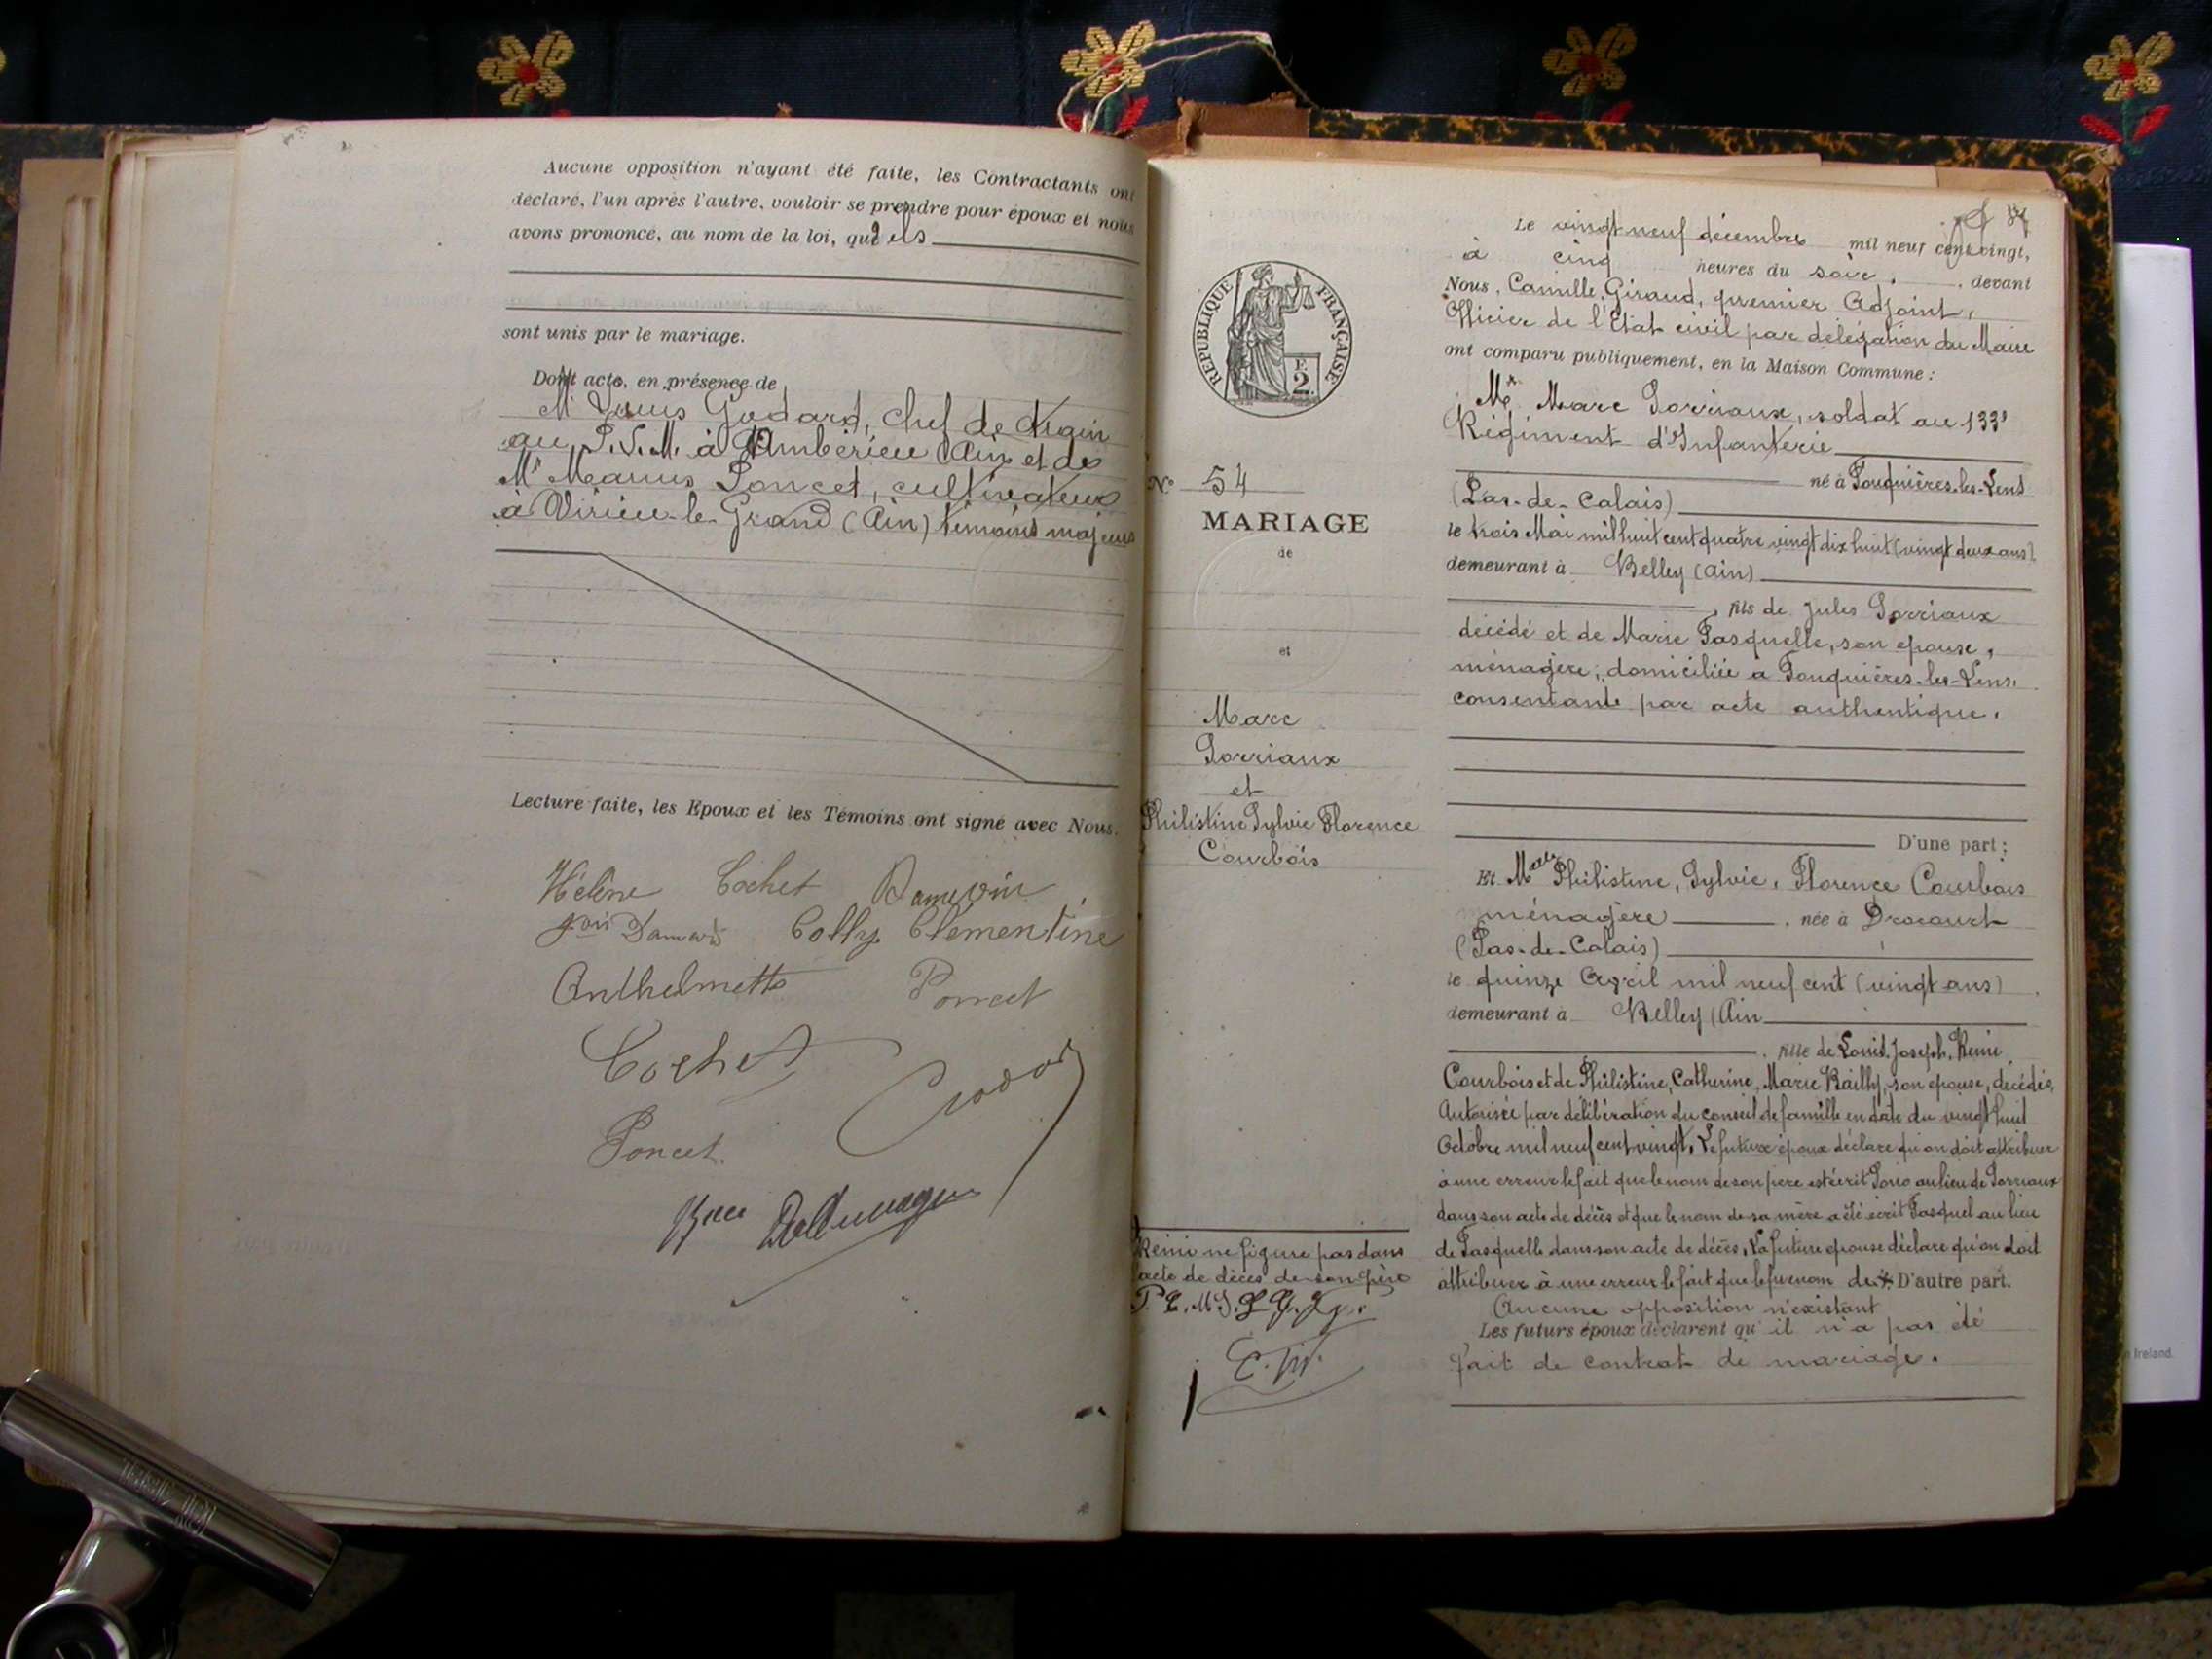 Aucune opposition n'ayant été faite, les Contractants ont
déclaré, l'un après l'autre, vouloir se prendre pour époux et nous
avons prononcé, au nom de la loi, qu'ils
sont unis par le mariage.
Dont acte, en présence de
Mr Louis Godard, chef de train
au P.L.M. à Ambérieu (Ain et de
Mr Marius Poncet, cultivateur
à Virieu-le-Grand (Ain) témoins majeurs
Lecture faite, les Epoux et les Témoins ont signé avec Nous.
Hélène Cochet
Colly Clémentine
Anthelmette Poncet
Cochet
Godard
Poncet
REPUBLIQUE FRANÇAISE
F.
2.
No 54
MARIAGE
de
et
Marc
Sorriaux
et
Philistine Sylvie Florence
Courbois
Remi ne figure pas dans
acte de décès de son père
Le vingt neuf décembre mil neuf cent vingt,
à cinq heures du soir, devant
Nous, Camille Giraud, premier Adjoint,
Officier de l'Etat civil par délégation du Maire
ont comparu publiquement, en la Maison Commune :
Mr Marc Sorriaux, soldat au 133e
Régiment d'Infanterie
né à Fouquières-les-Lens
(Pas-de-Calais)
le trois Mai mil huit cent quatre vingt dix huit (vingt deux ans)
demeurant à Belley (Ain)
, fils de Jules Sorriaux
décédé et de Marie Pasquelle, son epouse,
ménagère, domiciliée à Fouquières-les-Lens,
consentante par acte authentique.
D'une part ;
Et Melle Philistine, Sylvie, Florence Courbois
ménagère, née à Drocourt
(Pas-de-Calais)
le quinze Avril mil neuf cent (vingt ans)
demeurant à Belley (Ain
, fille de Louis, Joseph, Remi
Courbois et de Philistine, Catherine, Marie Bailly, son epouse, décédés,
Autorisée par délibération du conseil de famille en date du vingt huit
Octobre mil neuf cent vingt. Le futur époux déclare qu'on doit attribuer
à une erreur le fait que le nom de son père est écrit Sorio au lieu de Sorriaux
dans son acte de décès et que le nom de sa mère a été écrit Pasquel au lieu
de Pasquelle dans son acte de décès, La future epouse déclare qu'on doit
attribuer à une erreur le fait que le prénom de D'autre part.
Aucune opposition n'existant
Les futurs époux déclarent qu'il n'a pas été
fait de contrat de mariage.
n Ireland.